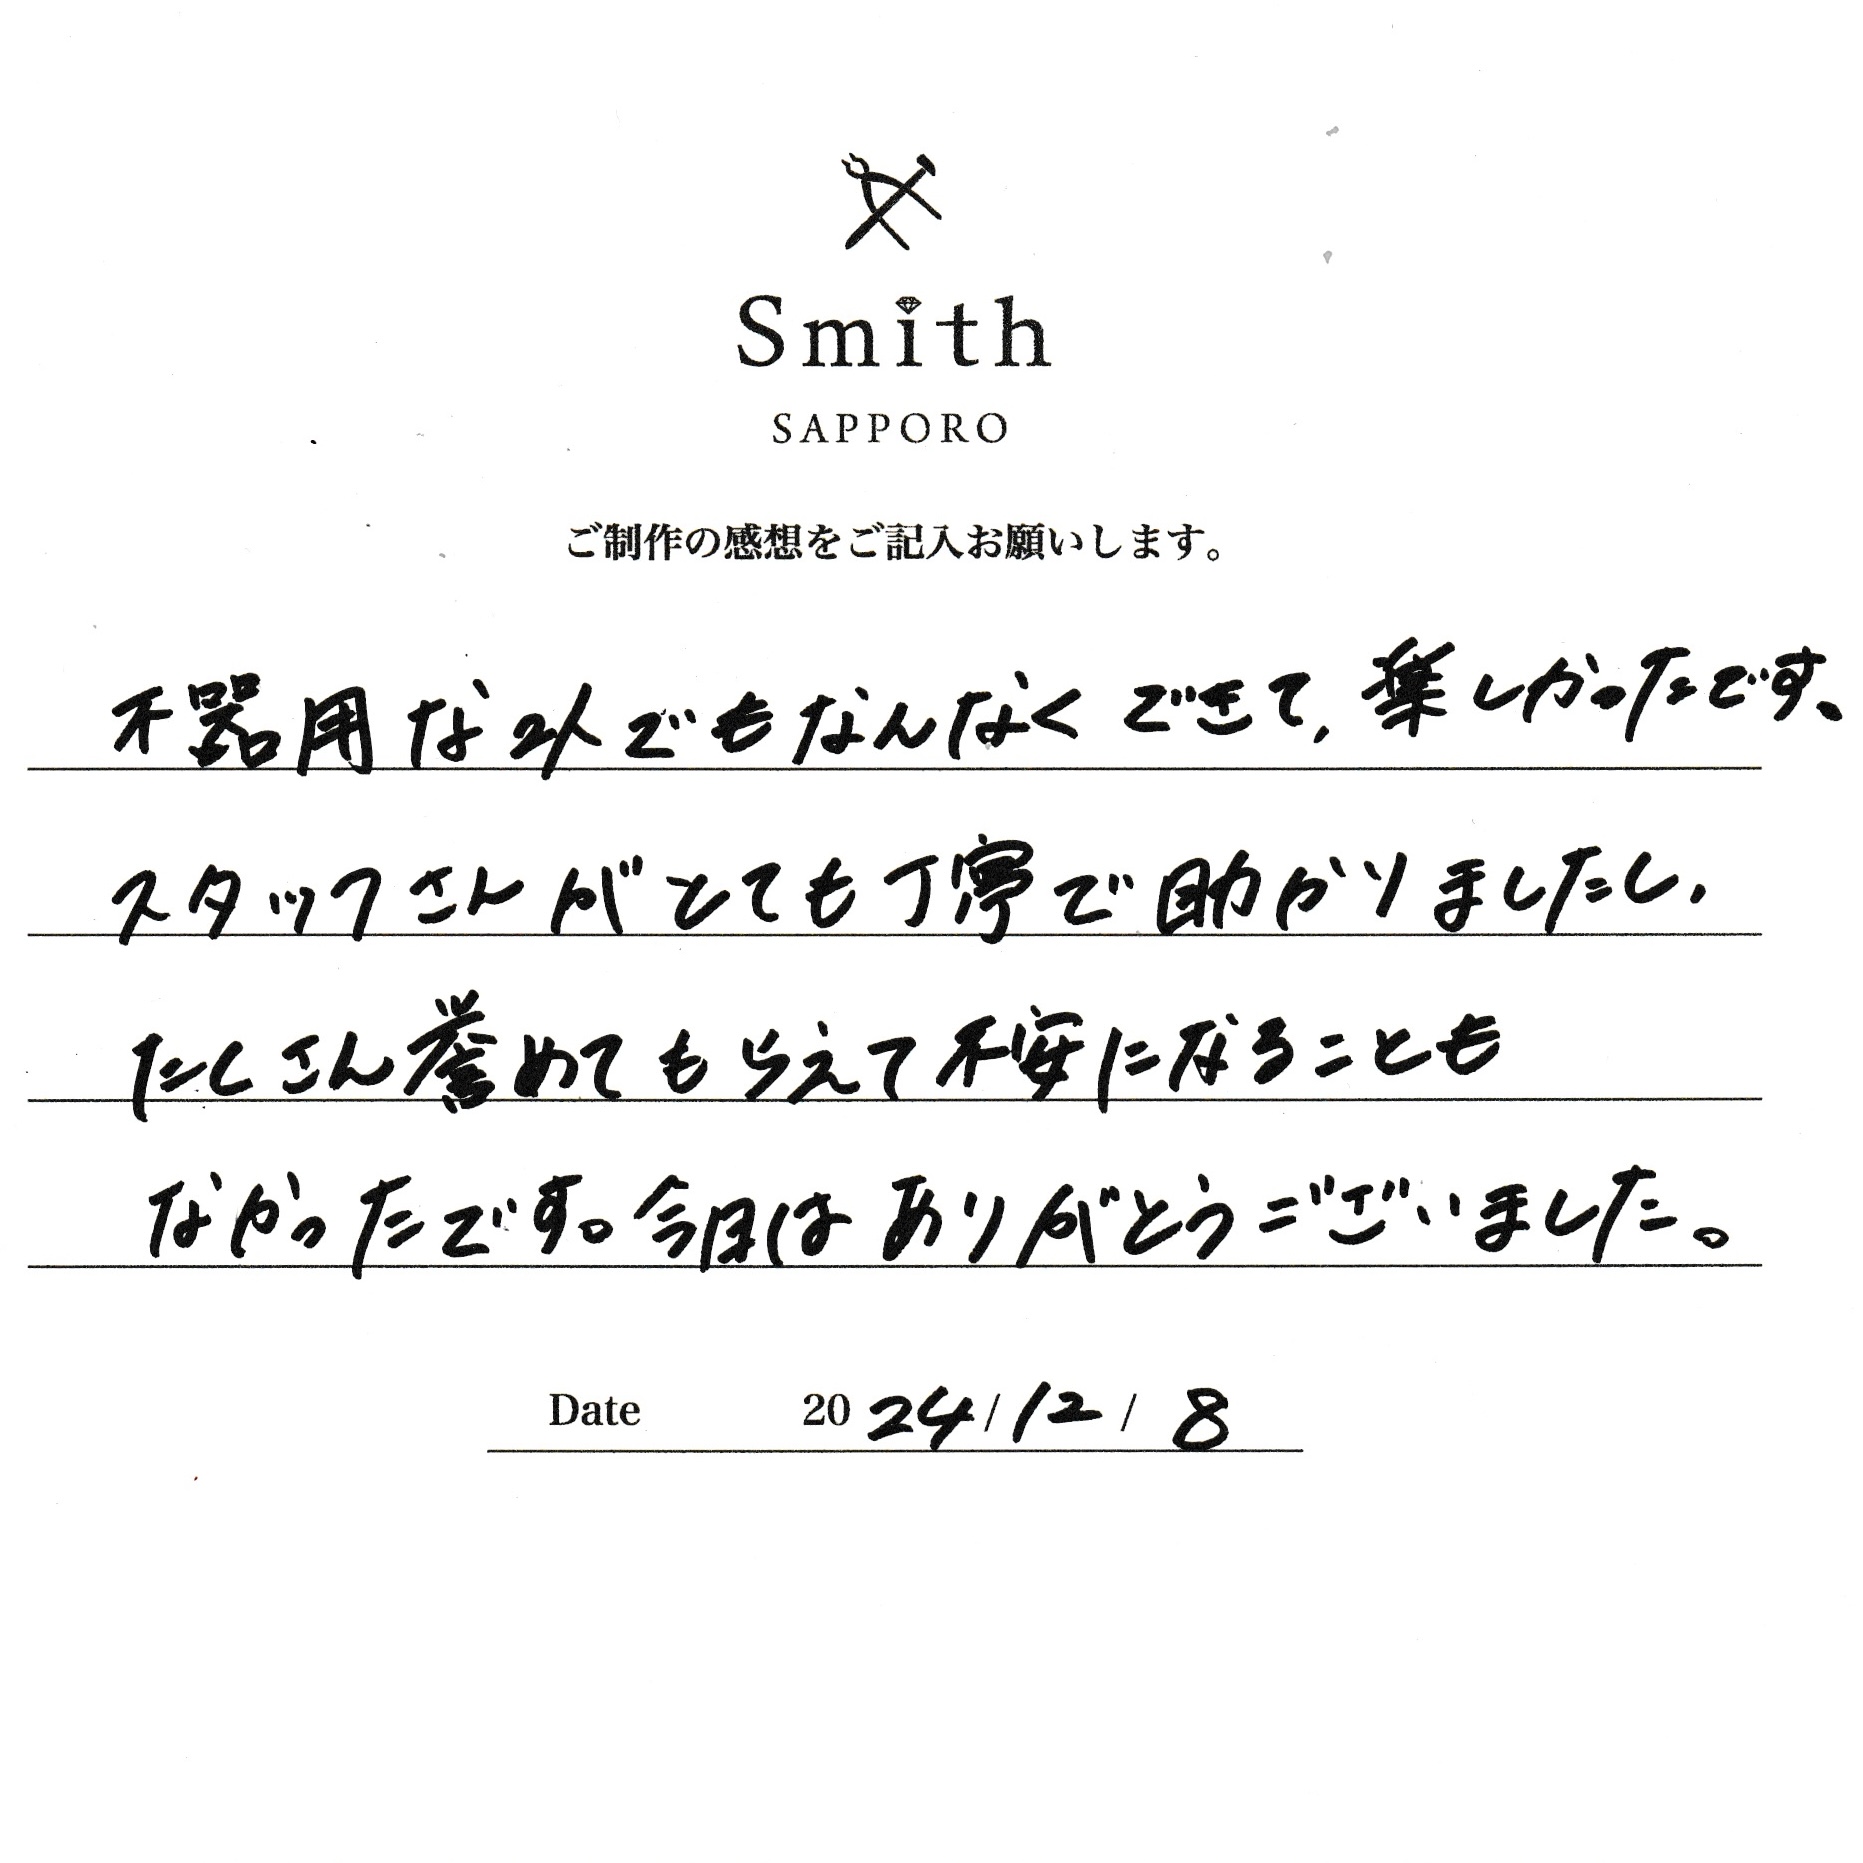 Smith
SAPPORO
ご制作の感想をご記入お願いします。
不器用な2人でもなんなくできて、楽しかったです、
スタッフさんがとても丁寧で助かりましたし、
たくさん誉めてもらえて不安になることも
なかったです。今日はありがとうございました。
Date 2024/12/8